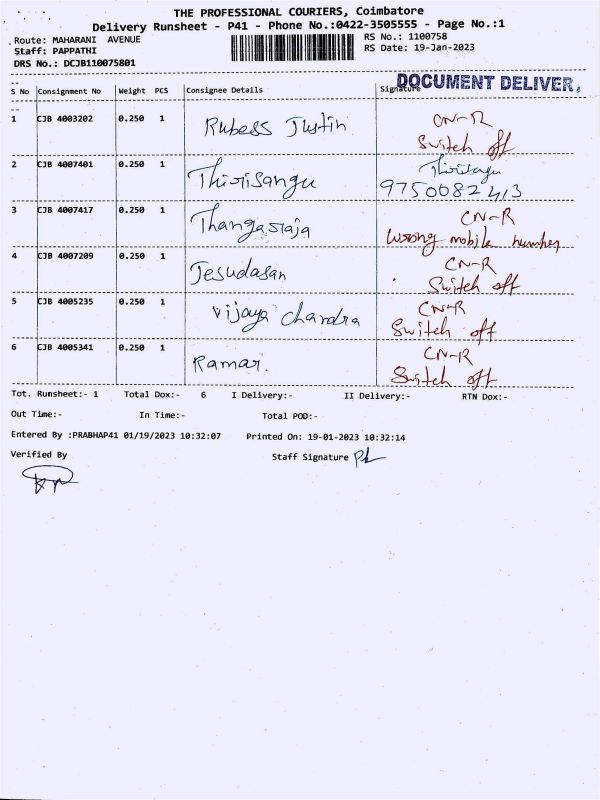 THE PROFESSIONAL COURIERS, Coimbatore
Delivery Runsheet - P41 - Phone No.:0422-3505555 - Page No.:1
Route: MAHARANI AVENUE
RS No.: 1100758
Staff: PAPPATHI
RS Date: 19-Jan-2023
DRS No.: DCJB110075801
DOCUMENT DELIVER.
S No Consignment No Weight PCS Consignee Details Signature
1 CJB 4003202 0.250 1 Rubess Justin CN-R
Switch off
2 CJB 4007401 0.250 1 Thirisangu Thirisangu
9750082413
3 CJB 4007417 0.250 1 Thangasraja CN-R
Wrong mobile number
4 CJB 4007209 0.250 1 Jesudasan CN-R
Switch off
5 CJB 4005235 0.250 1 Vijaya Chandra CN-R
Switch off
6 CJB 4005341 0.250 1 Ramar. CN-R
Switch off
Tot. Runsheet:- 1 Total Dox:- 6 I Delivery:- II Delivery:- RTN Dox:-
Out Time:- In Time:- Total POD:-
Entered By :PRABHAP41 01/19/2023 10:32:07 Printed On: 19-01-2023 10:32:14
Verified By Staff Signature